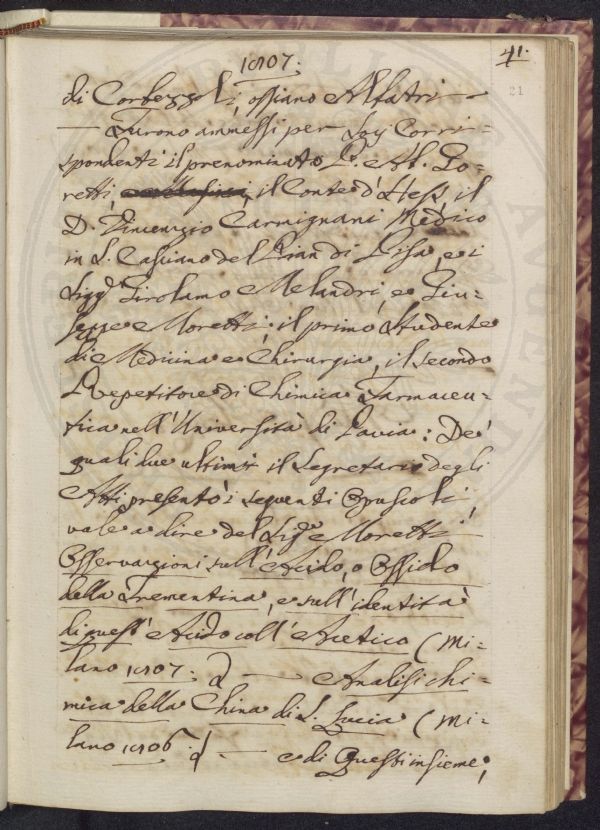 1807.
41.
21
di Corbezzoli, ossiano Albatri —
— Furono ammessi per Soci Corri-
spondenti il prenominato P. Ab. Po-
retti, il Conte d'Hess, il
D. Vincenzio Carmignani Medico
in S. Casciano del Pian di Pisa, e i
Sigg.ri Girolamo Melandri, e Giu-
seppe Moretti; il primo Studente
di Medicina e Chirurgia, il secondo
Repetitore di Chimica Farmaceu-
tica nell'Università di Pavia: De'
quali due ultimi il Segretario degli
Atti presentò i seguenti Opuscoli,
vale a dire del Sig.r Moretti
Osservazioni sull'Acido, o Ossido
della Trementina, e sull'identità
di quest'Acido coll'Acetico (Mi-
lano 1807.) — Analisi chi-
mica della China di S. Lucia (Mi-
lano 1806.) — e di Questi insieme,